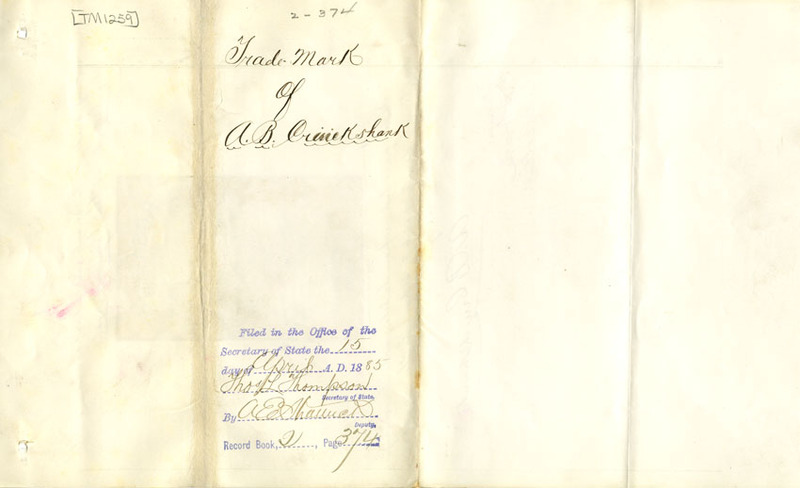 [TM1259]
2-374
Trade Mark
of
A. B.
Filed in the Office of the
Secretary of State the 15
day of April A. D. 1885
Thos L Thompson
Secretary of State.
By A E Shattuck
Deputy.
Record Book, 2, Page 374